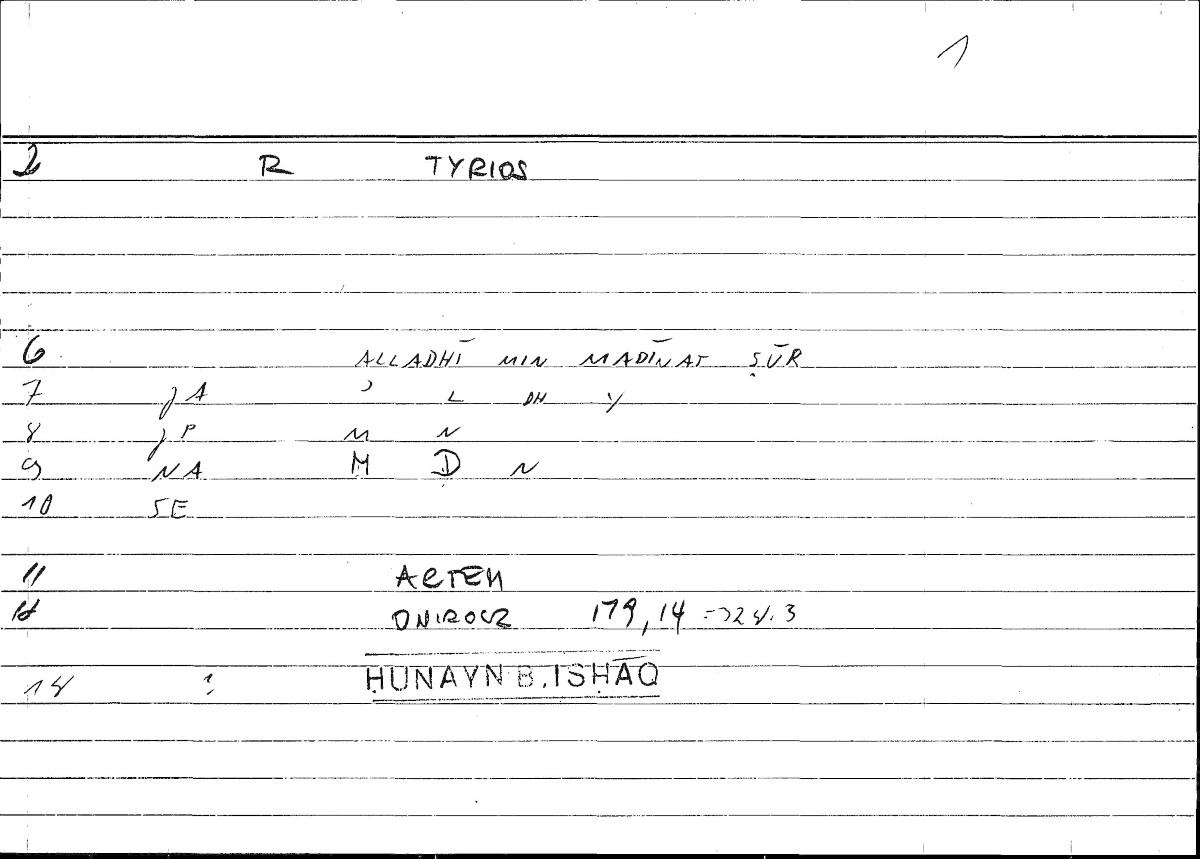 1
2 R TYRIOS
6 ALLADHĪ MIN MADĪNAT ṢŪR
7 jA ʾ L DH Y
8 jP M N
9 NA M D N
10 SE
11 ARTEM
12 ONIROCR 179,14
14 ? ḤUNAYN B. ISḤĀQ